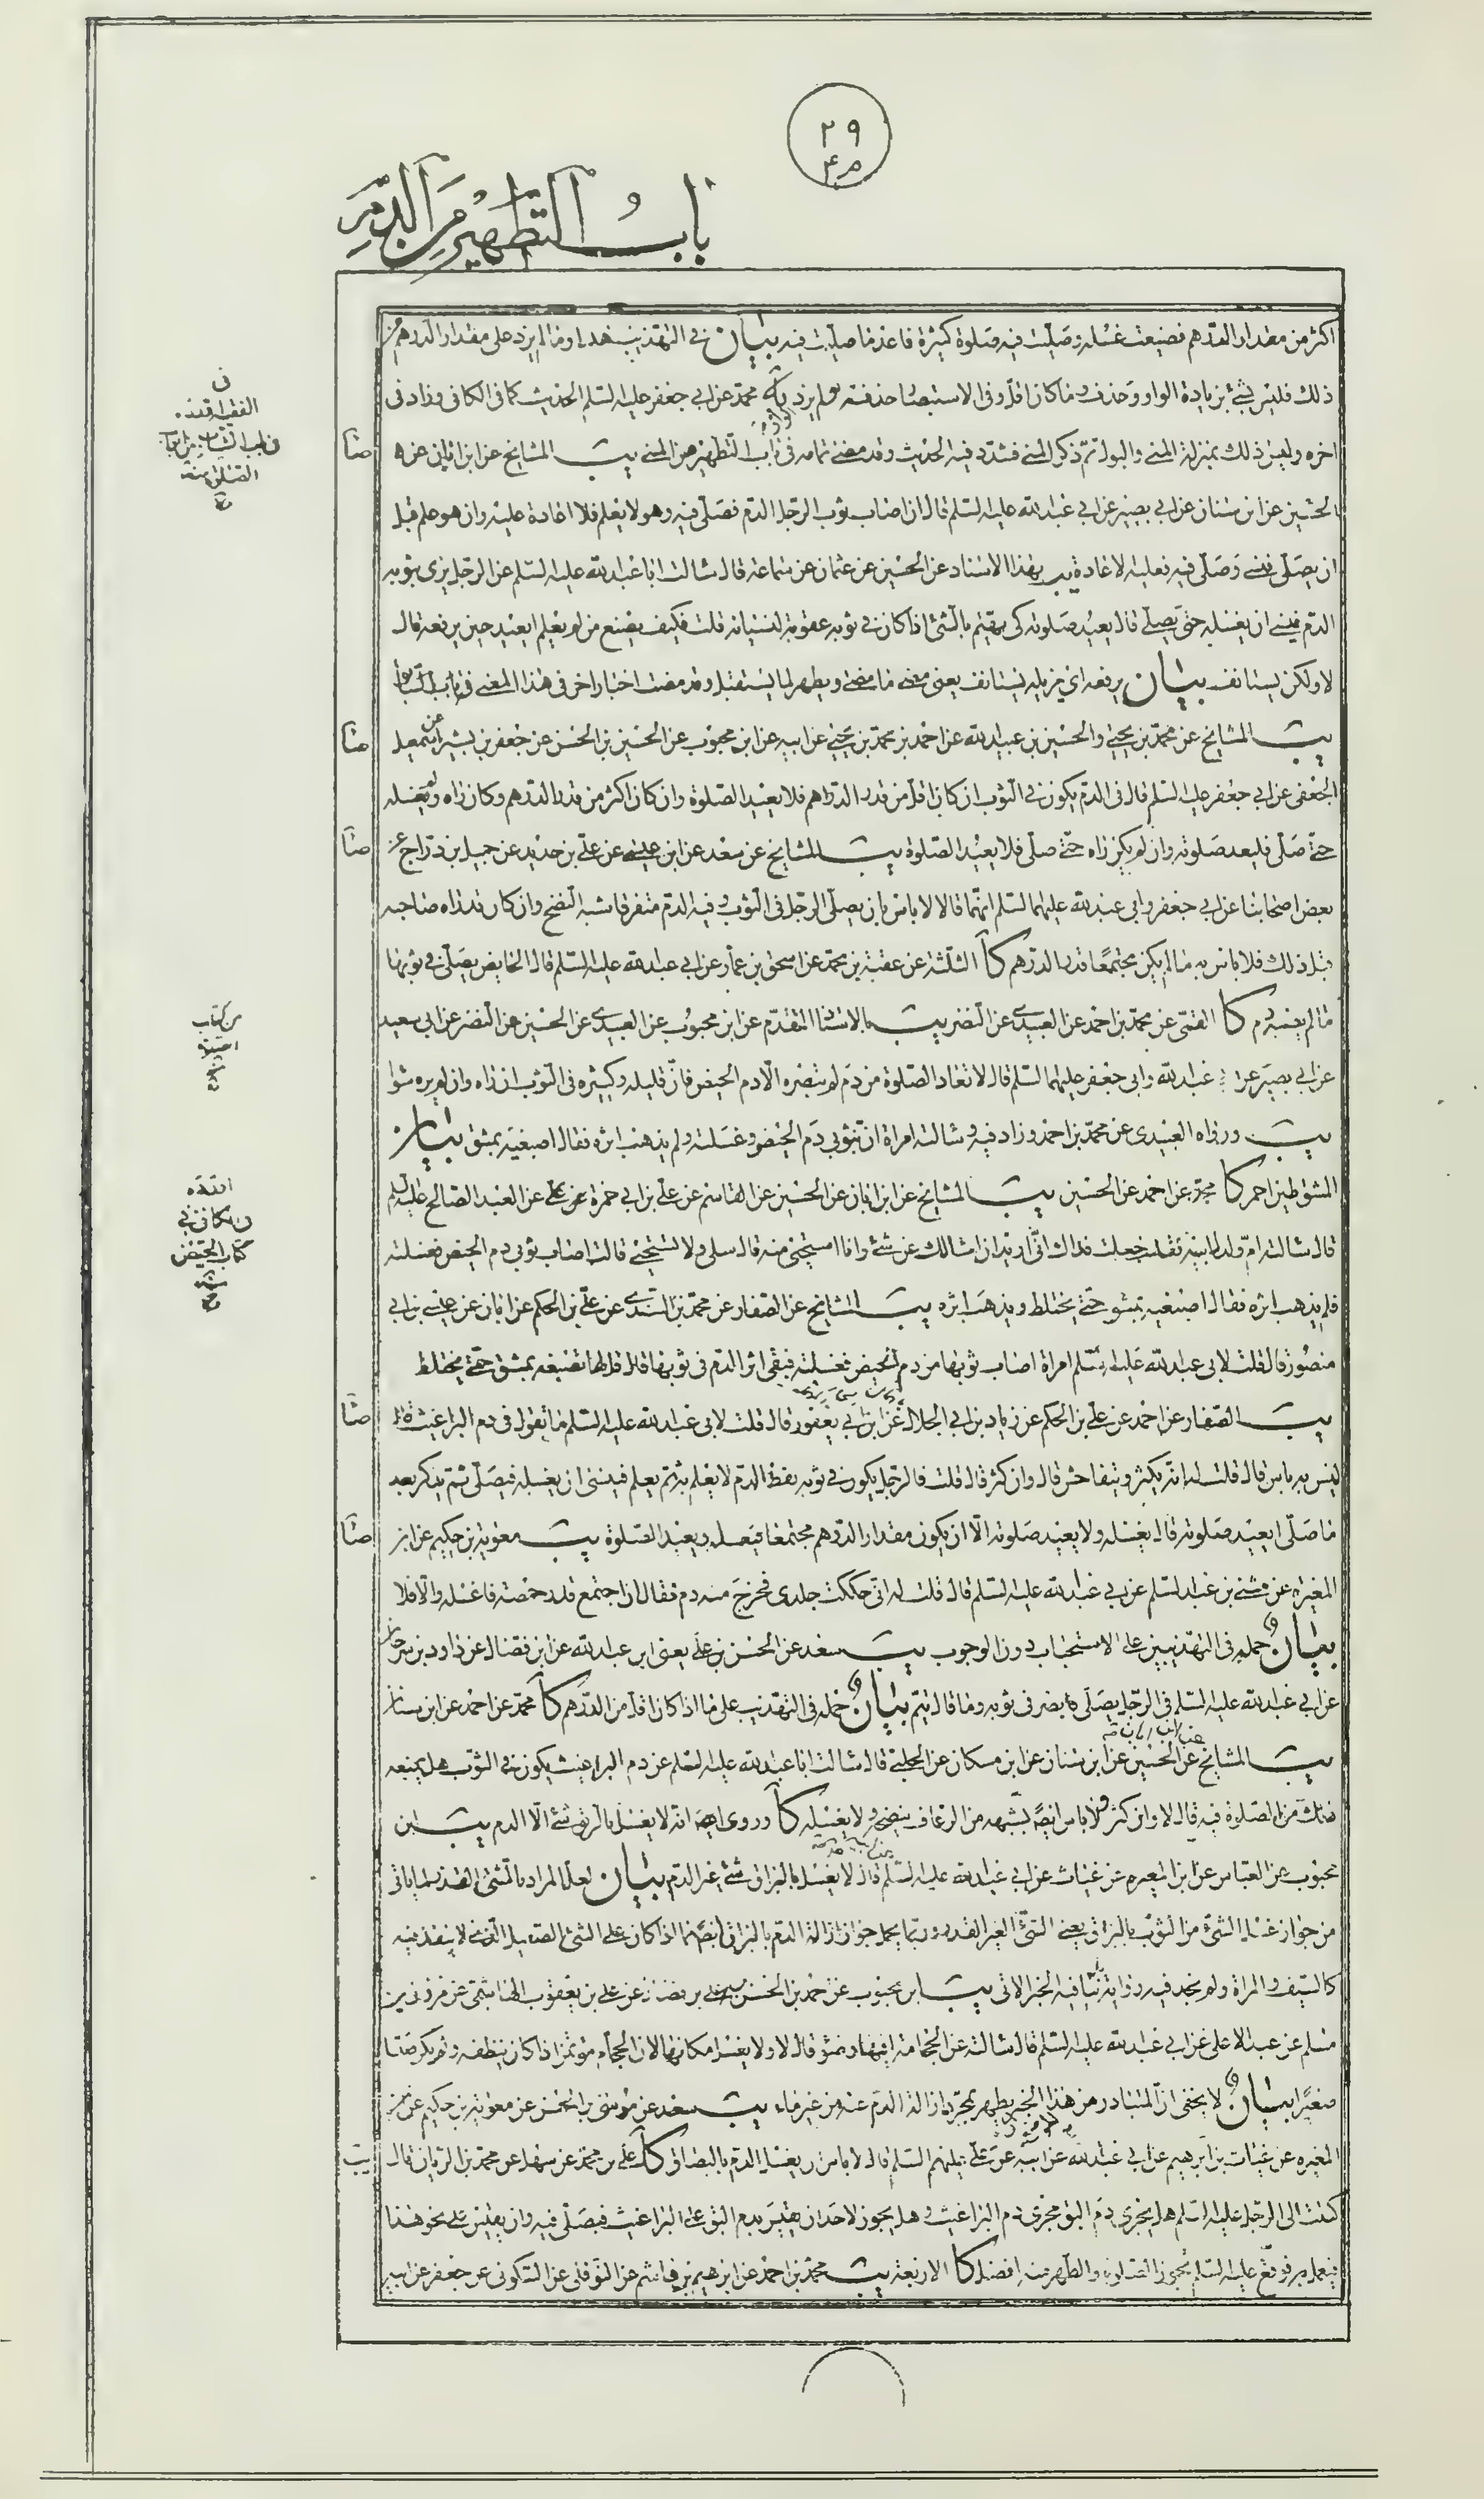 ٢٩
باب التطهير من الدم
اكثر من مقدار الدرهم فضيعت غسله وصليت فيه صلوة كثيرة فاعد ما صليت فيه بيان في التهذيب هذا وما لم يزد على مقدار الدرهم من
ذلك فليس بشئ بزيادة الواو وحذف وما كان اقل وفى الاستبصار حذفه ولم يزد يه محمد عن ابي جعفر عليه السلم الحديث كما فى الكافى وزاد فى
اخره وليس ذلك بمنزلة المني والبول ثم ذكر المني فشدد فيه الحديث وقد مضى تمامه فى باب التطهير من المني يب المشايخ عن ابن ابان عن
الحسين عن ابن سنان عن ابي بصير عن ابي عبدالله عليه السلم قال ان اصاب ثوب الرجل الدم فصلى فيه وهو لا يعلم فلا اعادة عليه وان هو علم قبل
ان يصلى فنسي وصلى فيه فعليه الاعادة يب بهذا الاسناد عن الحسين عن عثمان عن سماعة قال سالت ابا عبدالله عليه السلم عن الرجل يرى بثوبه
الدم فينسي ان يغسله حتى يصلي قال يعيد صلوته كى يهتم بالشئ اذا كان في ثوبه عقوبة لنسيانه قلت فكيف يصنع من لم يعلم ايعيد حين يرفعه قال
لا ولكن يستانف بيان يرفعه اي يزيله يستانف يعنى مضى ما مضى ويطهر لما يستقبل وقد مضت اخبار اخر فى هذا المعنى فى باب
يب المشايخ عن محمد بن يحيي والحسين بن عبيدالله عن احمد بن محمد بن يحيي عن ابيه عن ابن محبوب عن الحسين بن الحسن عن جعفر بن بشير عن اسمعيل
الجعفى عن ابي جعفر عليه السلم قال فى الدم يكون في الثوب ان كان اقل من قدر الدرهم فلا يعيد الصلوة وان كان اكثر من قدر الدرهم وكان راه ولم يغسله
حتى صلى فليعد صلوته وان لم يكن راه حتى صلى فلا يعيد الصلوة يب المشايخ عن سعد عن ابن عيسى عن علي بن حديد عن جميل بن دراج عن
بعض اصحابنا عن ابي جعفر وابى عبدالله عليهما السلم انهما قالا لا باس بان يصلى الرجل فى الثوب وفيه الدم متفرقا شبه النضح وان كان قد راه صاحبه
قبل ذلك فلا باس به ما لم يكن مجتمعا قدر الدرهم كا الثلثة عن عقبة بن محمد عن اسحق بن عمار عن ابي عبدالله عليه السلم قال الحايض يصلى في ثوبها
ما لم يصبه دم كا القمى عن محمد بن احمد عن العبيدى عن النضر يب بالاسناد المتقدم عن ابن محبوب عن العبيدى عن الحسين عن النضر عن ابى سعيد
عن ابي بصير عن ابي عبدالله وابى جعفر عليهما السلم قال لا تعاد الصلوة من دم لم تبصره الا دم الحيض فان قليله وكثيره فى الثوب ان راه وان لم يره سواء
يب ورواه العبيدى عن محمد بن احمد وزاد فيه وسالته امراة ان بثوبي دم الحيض وغسلته ولم يذهب اثره فقال اصبغيه بمشق بيان
المشق طين احمر كا محمد عن احمد عن الحسين يب المشايخ عن ابن ابان عن الحسين عن القاسم عن علي بن ابي حمزة عن علي عن العبد الصالح عليه السلم
قال سالته ام ولد لابيه فقالت جعلت فداك انى اريد ان اسالك عن شئ وانا استحيى منه قال سلى ولا تستحيي قالت اصاب ثوبي دم الحيض فغسلته
فلم يذهب اثره فقال اصبغيه بمشق حتى يختلط ويذهب اثره يب المشايخ عن الصفار عن محمد بن السندي عن علي بن الحكم عن ابان عن عيسى بن ابي
منصور قال قلت لابى عبدالله عليه السلم امراة اصاب ثوبها من دم الحيض فغسلته فبقى اثر الدم فى ثوبها قال قل لها تصبغه بمشق حتى يختلط
يب الصفار عن احمد عن علي بن الحكم عن زياد بن ابي الحلال عن ابن ابي يعفور قال قلت لابى عبدالله عليه السلم ما تقول فى دم البراغيث قال
ليس به باس قال قلت له انه يكثر ويتفاحش قال وان كثر قال قلت فالرجل يكون في ثوبه نقط الدم لا يعلم به ثم يعلم فينسى ان يغسله فيصلى ثم يذكر بعد
ما صلى ايعيد صلوته قال يغسله ولا يعيد صلوته الا ان يكون مقدار الدرهم مجتمعا فيغسله ويعيد الصلوة يب معوية بن حكيم عن ابن
المغيرة عن مثنى بن عبد السلم عن ابي عبدالله عليه السلم قال قلت له انى حككت جلدى فخرج منه دم فقال ان اجتمع قدر حمصة فاغسله والا فلا
بيان حمله فى التهذيبين على الاستحباب دون الوجوب يب سعد عن الحسن بن علي يعنى ابن عبدالله عن ابن فضال عن داود بن سرحان
عن ابي عبدالله عليه السلم فى الرجل يصلى فابصر فى ثوبه دما قال يتم بيان حمله فى التهذيب على ما اذا كان اقل من الدرهم كا محمد عن احمد عن ابن سنان
يب المشايخ عن الحسين عن ابن سنان عن ابن مسكان عن الحلبي قال سالت ابا عبدالله عليه السلم عن دم البراغيث يكون في الثوب هل يمنعه
ذلك من الصلوة فيه قال لا وان كثر ولا باس ايضا بشبهه من الرعاف ينضحه ولا يغسله كا وروى ايضا انه لا يغسل بالريق شئ الا الدم يب ابن
محبوب عن العباس عن ابن المغيرة عن غياث عن ابي عبدالله عليه السلم قال لا يغسل بالبزاق شئ غير الدم بيان لعل المراد بالشئ القذر لما ياتى
من جواز غسل الشئ من الثوب بالبزاق يعنى الشئ الغير القذر وربما يحمل جواز ازالة الدم بالبزاق ايضا اذا كان على الشئ الصقيل الذي لا ينفذ فيه
كالسيف والمراة ولم يجد فيه رواية ينافيه الخبر الاتى يب ابن محبوب عن احمد بن الحسن بن علي بن فضال عن علي بن يعقوب الهاشمى عن مروان بن
مسلم عن عبد الاعلى عن ابي عبدالله عليه السلم قال سالته عن الحجامة افيها وضوء قال لا ولا يغسل مكانها لان الحجام مؤتمن اذا كان ينظفه ولم يكن صبيا
صغيرا بيان لا يخفى ان المتبادر من هذا الخبر يطهر بمجرد ازالة الدم عنه من غير ماء يب سعد عن موسى بن الحسن عن معوية بن حكيم عن ابن
المغيرة عن غياث بن ابرهيم عن ابي عبدالله عن ابيه عن علي عليهم السلم قال لا باس ان يغسل الدم بالبصاق كا علي بن محمد عن سهل عن محمد بن الريان قال
كتبت الى الرجل عليه السلم هل يجرى دم البق مجرى دم البراغيث وهل يجوز لاحد ان يقيس بدم البق على البراغيث فيصلى فيه وان يقيس على نحو هذا
فيعمل به فوقع عليه السلم يجوز الصلوة والطهر منه افضل كا الاربعة يب محمد بن احمد عن ابرهيم بن هاشم عن النوفلى عن السكونى عن جعفر عن ابيه